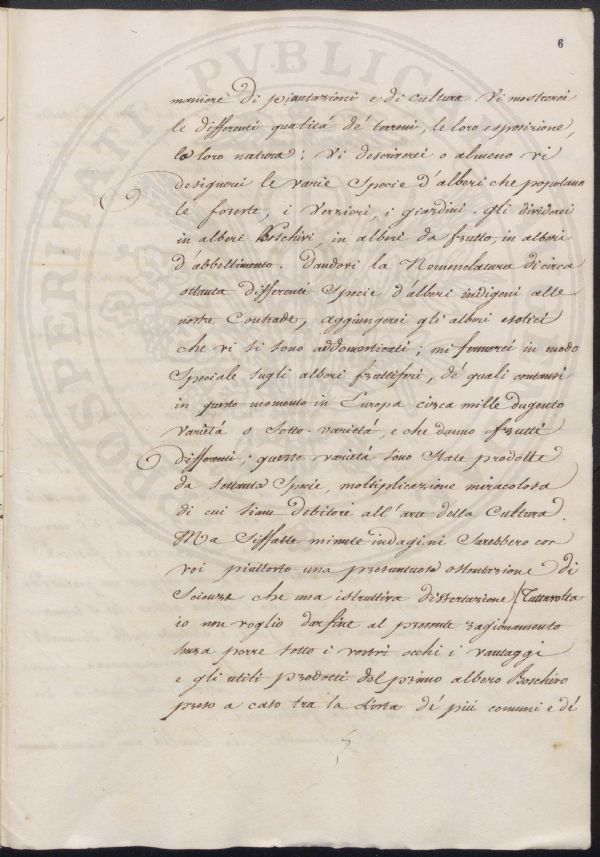 6
maniere di piantazioni e di cultura. Vi mostrerei
le differenti qualitá dé terreni, le loro esposizione,
la loro natura; Vi descriverei o almeno vi
designerei le varie Specie d'alberi che popolano
le foreste, i Verzieri, i giardini. gli dividerei
in alberi Boschivi, in alberi da frutto, in alberi
d'abbellimento. Dandovi la Nomenclatura di circa
ottanta differenti Specie d'alberi indigeni alle
nostre Contrade, aggiungerei gli alberi esotici
che vi si sono addomesticati; mi fermerei in modo
Speciale sugli alberi fruttiferi, dé quali contansi
in questo momento in Europa circa mille dugento
varietá o Sotto-varietá, e che danno frutti
differenti; queste varietá sono State prodotte
da settanta Specie, moltiplicazione miracolosa
di cui siamo debitori all'arte della Cultura.
Ma Siffatte minute indagini Sarebbero con
voi piuttosto una presuntuosa ostentazione di
Scienza che una istruttiva dissertazione (Tuttavolta
io non voglio dar fine al presente ragionamento
senza porre sotto i vostri occhi i vantaggi
e gli utili prodotti del primo albero Boschivo
preso a caso tra la lista dé piú comuni e dé
PROSPERITATI PUBLICAE